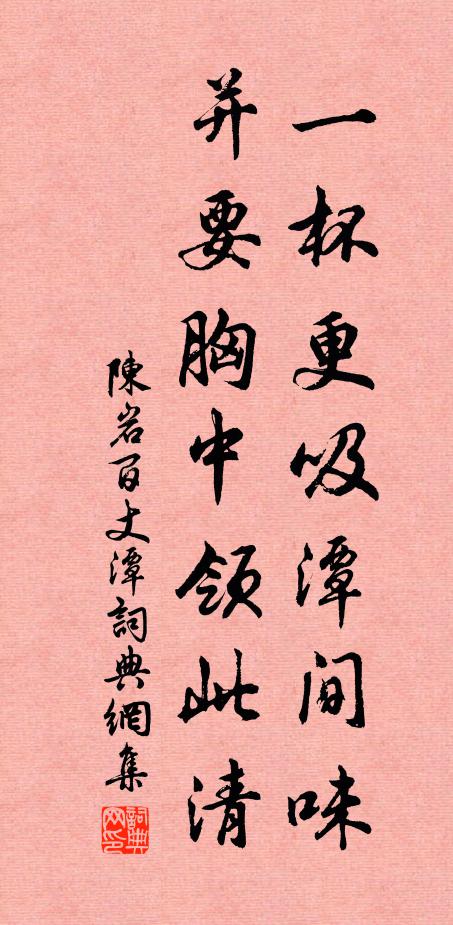 一杯更吸潭间味
并要胸中领此清
陳岩百丈潭詞典網集
詞典网印